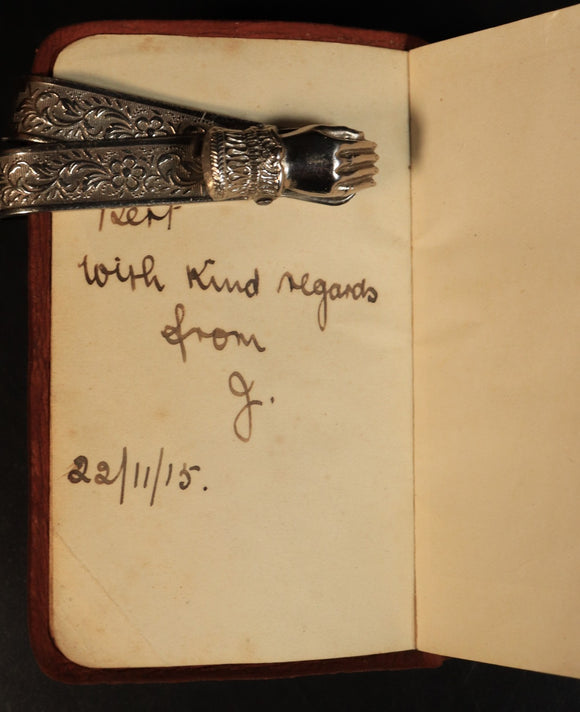 Bert
with Kind regards
from
J.
22/11/15.